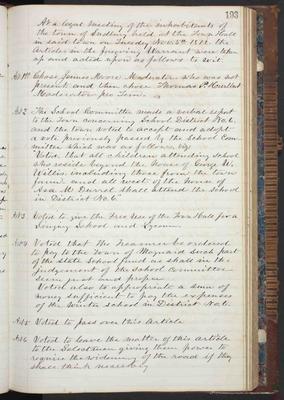 193
At a legal meeting of the inhabitants of
the town of Sudbury held at the Town Hall
in said town on Tuesday Nov. 5th 1872 the
Articles in the foregoing Warrant were taken
up and acted upon as follows to wit.
Art 1st Chose James Moore Moderator who was not
present and then chose Thomas P. Hurlbut
Moderator pro Tem.
Art 2 The School Committee made a verbal report
to the Town concerning School District No 6.
and the town voted to accept and adopt
a vote previously passed by the School Com
mittee which was as follows, viz
"Voted, that all children attending School
who reside beyond the house of George W.
Willis including those from the town
farm and all west of the house of
Asa M. Durrell shall attend the School
in District No 6"
Art 3 Voted to give the free use of the Town Hall for a
Singing School and Lyceum
Art 4 Voted that the Treasurer be ordered
to pay to the town of Maynard such part
of the State School fund as shall in the
judgement of the School Committee
seem just and proper.
Voted also to appropriate a sum of
money sufficient to pay the expenses
of the winter school in District No 6.
Art 5 Voted to pass over this Article
Art 6 Voted to leave the matter of this article
to the Selectmen giving them power to
require the widening of the road if they
shall think necessary